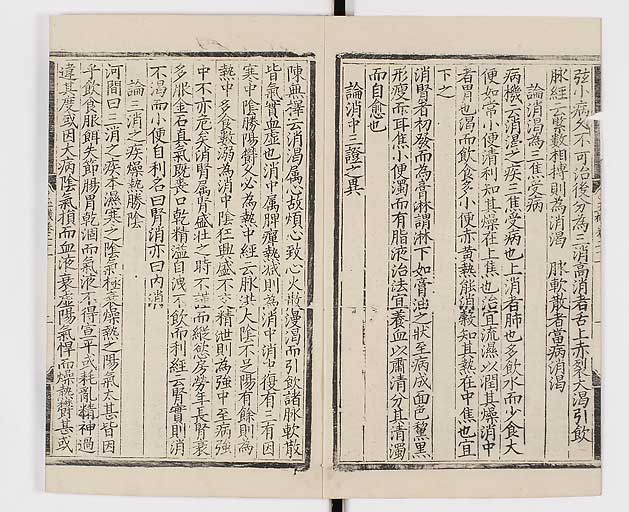 弦小病久不可治後分為三消高消者舌上亦裂大渴引飲
脉經云緊數相搏則為消渴 脉軟散者當病消渴
論消渴為三焦受病
病機云消渴之疾三焦受病也上消者肺也多飲水而少食大
便如常小便清利知其燥在上焦也治宜流濕以潤其燥消中
者胃也渴而飲食多小便亦黃熱能消穀知其熱在中焦也宜
下之
消腎者初發而為膏淋謂淋下如膏油之狀至病成面色黧黑
形瘦而耳焦小便濁而有脂液治法宜養血以肅清分其清濁
而自愈也
論消中三證之異
陳無擇云消渴屬心故煩心致心火散漫渴而引飲諸脉軟散
皆氣實血虛也消中屬脾癉熱成則為消中消中復有三有因
寒中陰勝陽鬱久必為熱中經云脉洪大陰不足陽有餘則為
熱中多食數溺為消中陰狂興盛不交精泄則為強中至病強
中不亦危矣消腎屬腎盛壯之時不謹而縱慾房勞年長腎衰
多服金石真氣既喪口乾精溢自洩不飲而利經云腎實則消
不渴而小便自利名曰腎消亦曰內消
論三消之疾燥熱勝陰
河間曰三消之疾本濕寒之陰氣極衰燥熱之陽氣太甚皆因
乎飲食服餌失節腸胃乾涸而氣液不得宣平或耗亂精神過
違其度或因大病陰氣損而血液衰虛陽氣悍而燥熱鬱甚或